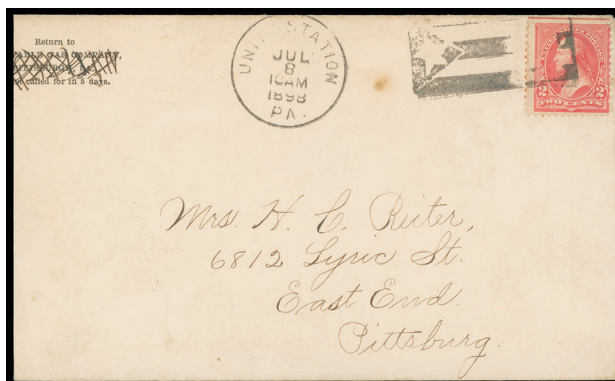 Return to
GAS COMPANY,
called for in 5 days.
UNION STATION
JUL
8
10AM
1898
PA.
2 TWO CENTS 2
Mrs. H. C. Reiter,
6812 Lyric St.
East End.
Pittsburg.